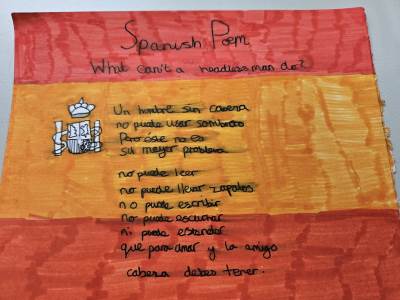 Spanish Poem
What can't a headless man do?
Un hombre sin cabeza
no puede usar sombrero
Pero éste no es
su mayor problema
no puede leer
no puede llevar zapatos
no puede escribir
no puede escuchar
ni puede estander
que para amar y la amigo
cabeza debes tener.